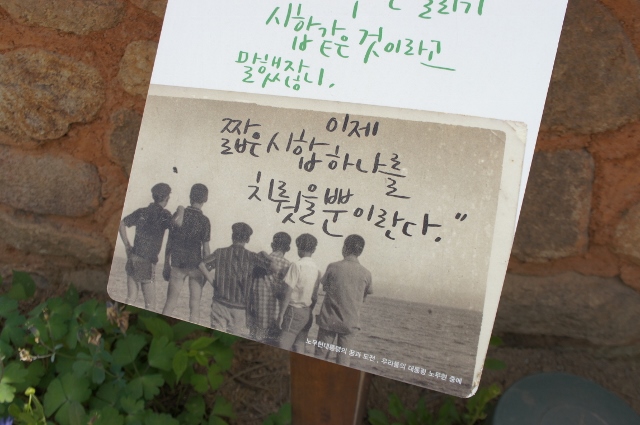 달리기
시합같은 것이라고
말했잖니.
이제
짧은 시합 하나를
치뤘을 뿐이란다."
노무현대통령의 꿈과 도전, 우리들의 대통령 노무현 중에